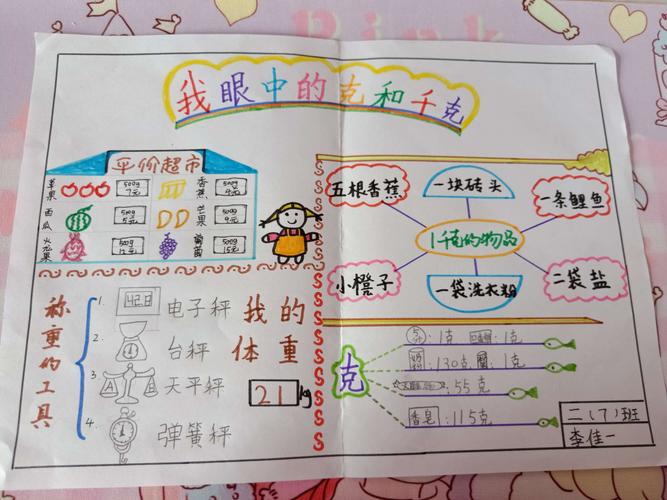 我眼中的克和千克
平价超市
苹果 500g 7元
香蕉 500g 4元
西瓜 500g 5元
芒果 500g 9元
火龙果 500g 12元
葡萄 500g 15元
五根香蕉
一块砖头
一条鲤鱼
1千克的物品
小櫈子
一袋洗衣粉
二袋盐
称重的工具
1. 电子秤
2. 台秤
3 天平秤
4. 弹簧秤
我的
体重
21 kg
克
:1克 :1克
:130克 :1克
:55克
香皂:115克
二(7)班
李佳一